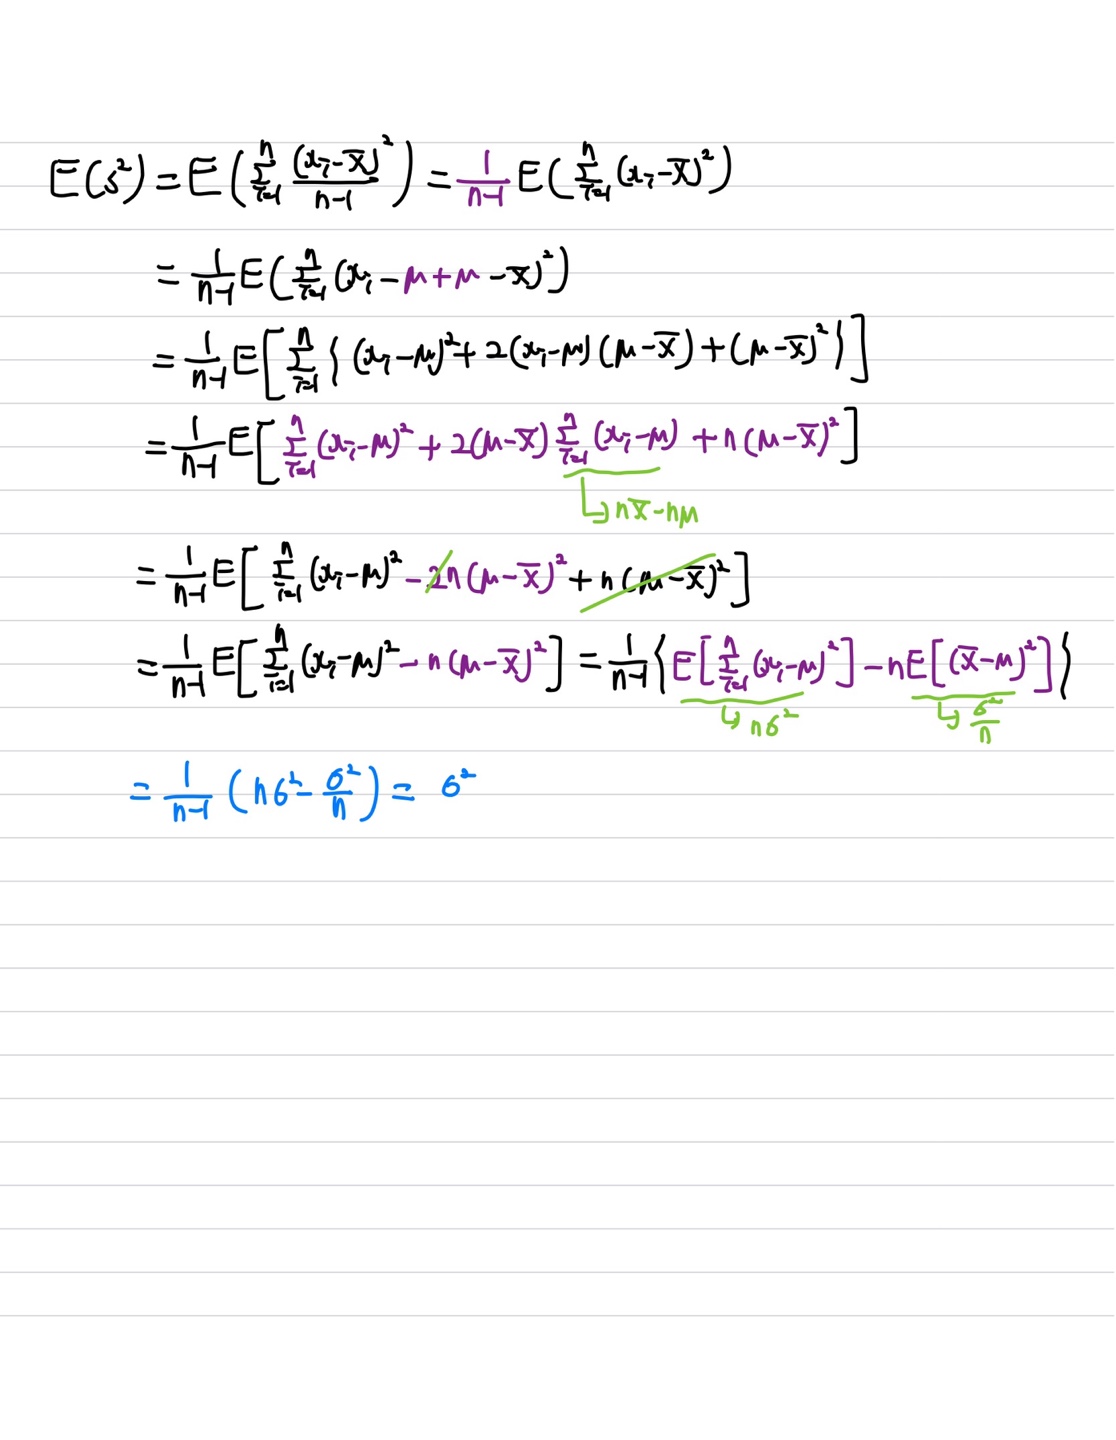 E(s²) = E(Σ_{i=1}^{n} (x_i-x̄)²/(n-1)) = 1/(n-1) E(Σ_{i=1}^{n} (x_i-x̄)²)
= 1/(n-1) E(Σ_{i=1}^{n} (x_i-μ+μ-x̄)²)
= 1/(n-1) E[Σ_{i=1}^{n} {(x_i-μ)²+2(x_i-μ)(μ-x̄)+(μ-x̄)²}]
= 1/(n-1) E[Σ_{i=1}^{n} (x_i-μ)²+2(μ-x̄) Σ_{i=1}^{n} (x_i-μ) + n(μ-x̄)²]
↳ nx̄-nμ
= 1/(n-1) E[Σ_{i=1}^{n} (x_i-μ)²-2n(μ-x̄)²+n(μ-x̄)²]
= 1/(n-1) E[Σ_{i=1}^{n} (x_i-μ)²-n(μ-x̄)²] = 1/(n-1) {E[Σ_{i=1}^{n} (x_i-μ)²]-nE[(x̄-μ)²]}
↳ nσ² ↳ σ²/n
= 1/(n-1) (nσ²-σ²/n) = σ²